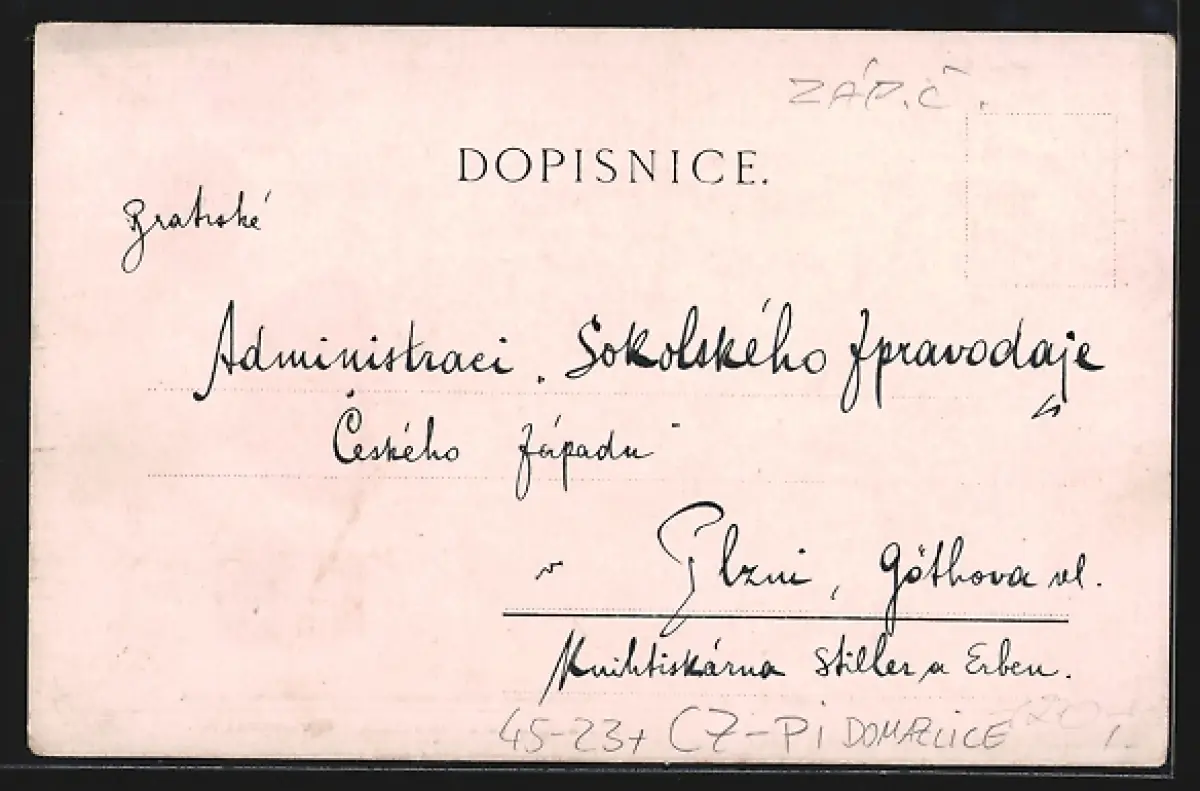 ZÁP. Č.
DOPISNICE.
Bratrské
Administraci „Sokolského Zpravodaje
Českého Západu“
v Plzni, Göthova ul.
Knihtiskárna Stiller a Erben.
45-23+ CZ-Pi DOMAŽLICE